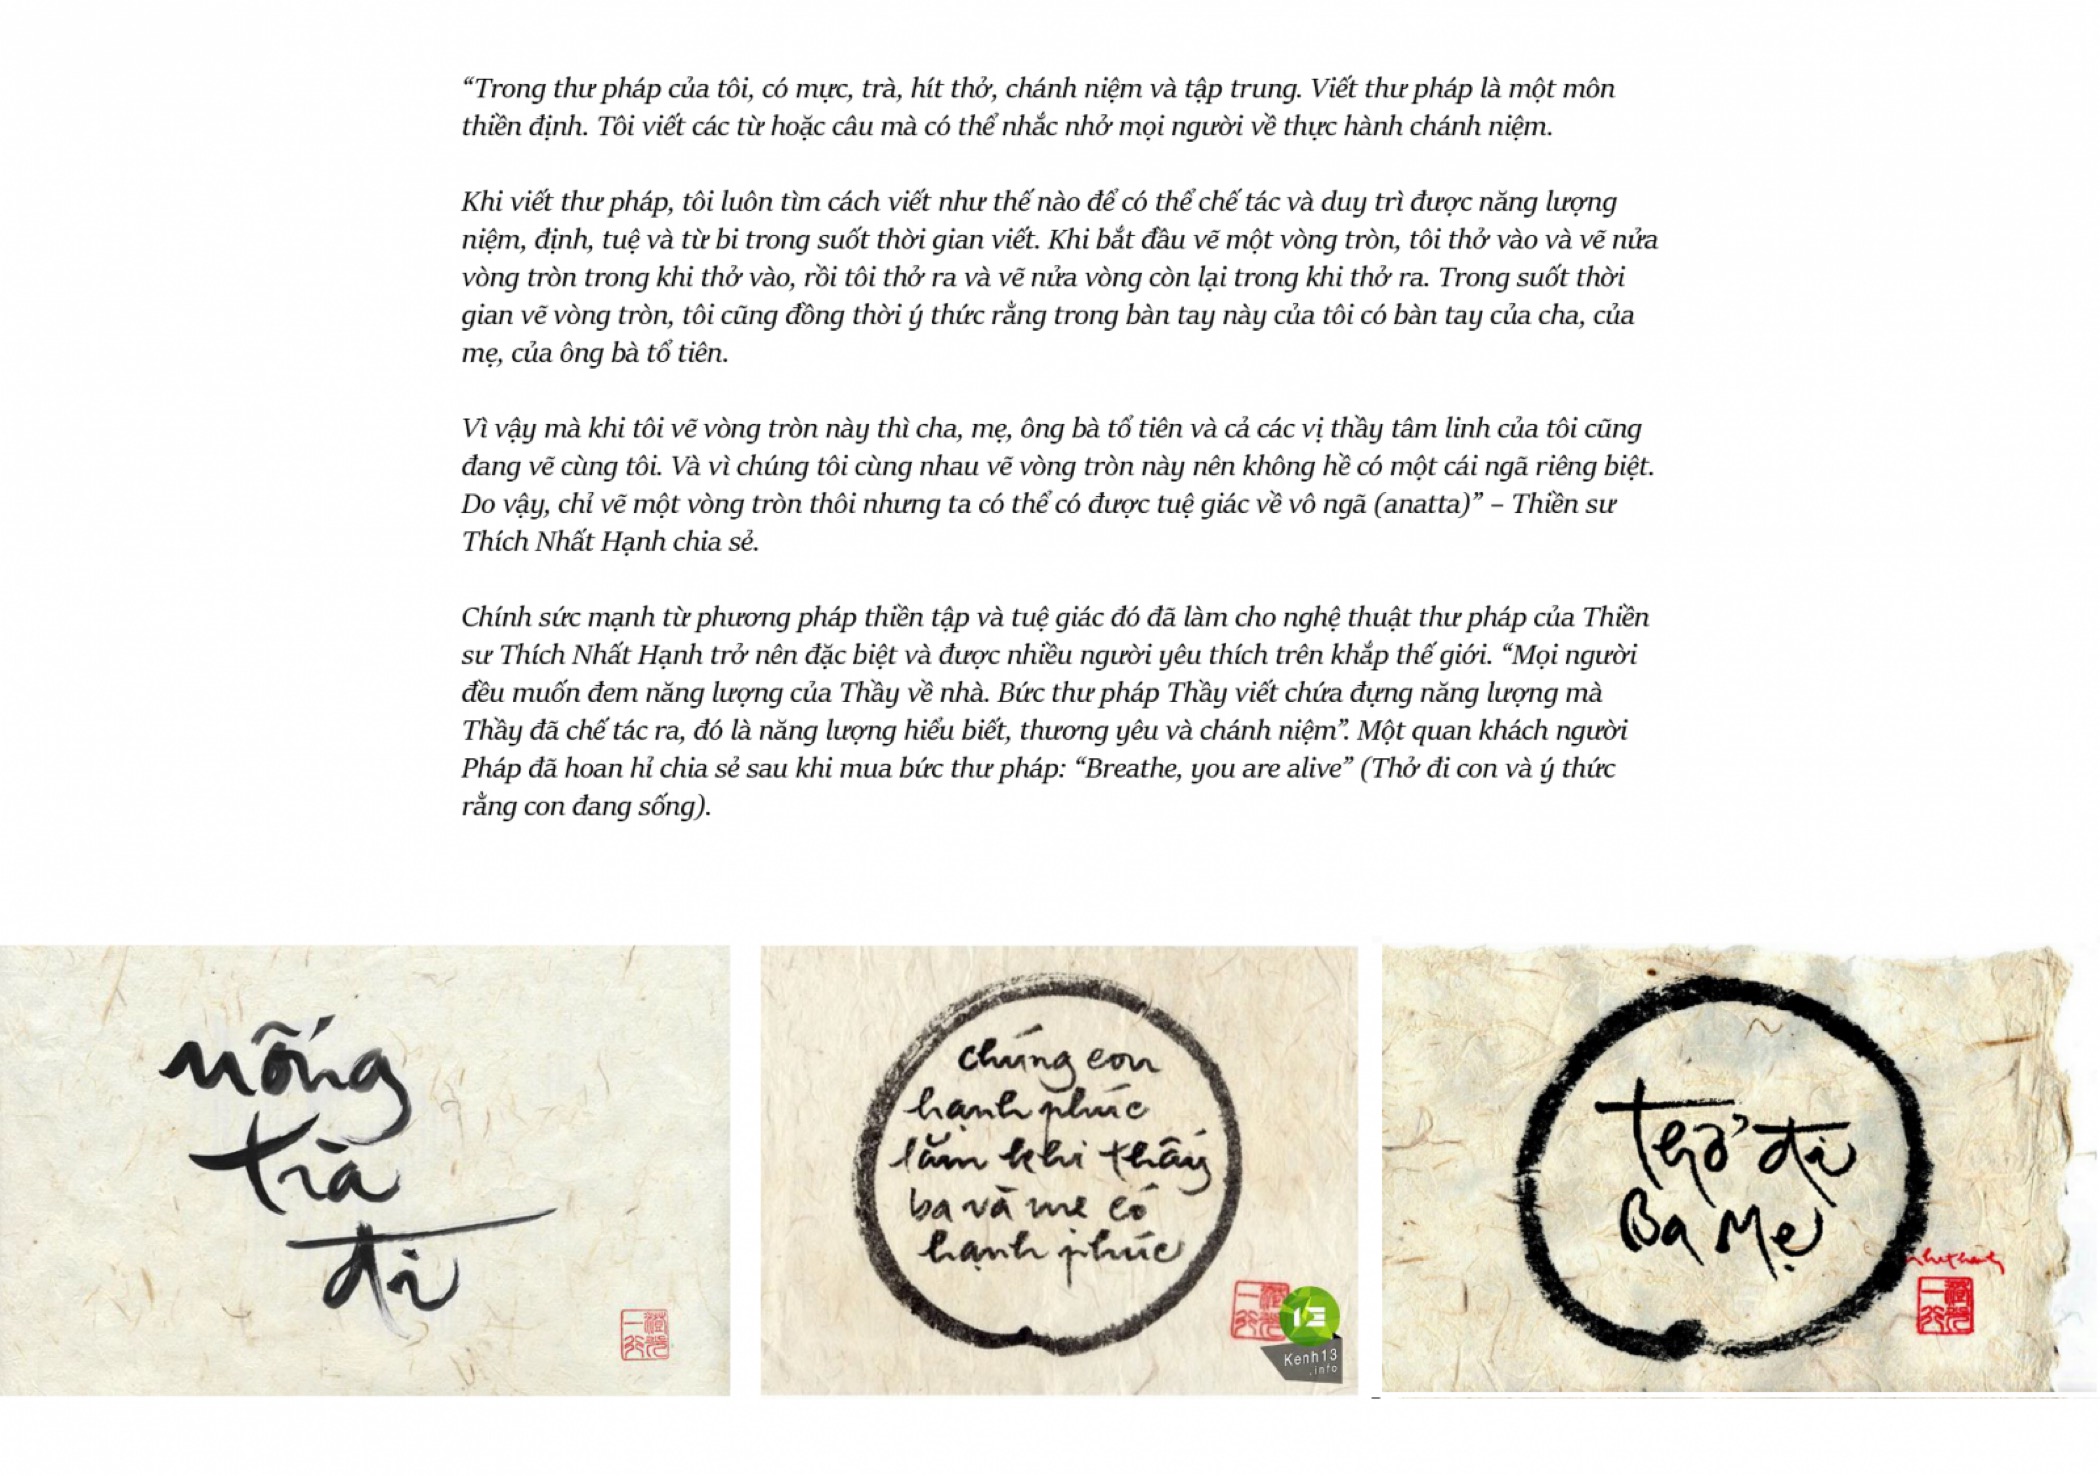 “Trong thư pháp của tôi, có mực, trà, hít thở, chánh niệm và tập trung. Viết thư pháp là một môn
thiền định. Tôi viết các từ hoặc câu mà có thể nhắc nhở mọi người về thực hành chánh niệm.
Khi viết thư pháp, tôi luôn tìm cách viết như thế nào để có thể chế tác và duy trì được năng lượng
niệm, định, tuệ và từ bi trong suốt thời gian viết. Khi bắt đầu vẽ một vòng tròn, tôi thở vào và vẽ nửa
vòng tròn trong khi thở vào, rồi tôi thở ra và vẽ nửa vòng còn lại trong khi thở ra. Trong suốt thời
gian vẽ vòng tròn, tôi cũng đồng thời ý thức rằng trong bàn tay này của tôi có bàn tay của cha, của
mẹ, của ông bà tổ tiên.
Vì vậy mà khi tôi vẽ vòng tròn này thì cha, mẹ, ông bà tổ tiên và cả các vị thầy tâm linh của tôi cũng
đang vẽ cùng tôi. Và vì chúng tôi cùng nhau vẽ vòng tròn này nên không hề có một cái ngã riêng biệt.
Do vậy, chỉ vẽ một vòng tròn thôi nhưng ta có thể có được tuệ giác về vô ngã (anatta)” – Thiền sư
Thích Nhất Hạnh chia sẻ.
Chính sức mạnh từ phương pháp thiền tập và tuệ giác đó đã làm cho nghệ thuật thư pháp của Thiền
sư Thích Nhất Hạnh trở nên đặc biệt và được nhiều người yêu thích trên khắp thế giới. “Mọi người
đều muốn đem năng lượng của Thầy về nhà. Bức thư pháp Thầy viết chứa đựng năng lượng mà
Thầy đã chế tác ra, đó là năng lượng hiểu biết, thương yêu và chánh niệm”. Một quan khách người
Pháp đã hoan hỉ chia sẻ sau khi mua bức thư pháp: “Breathe, you are alive” (Thở đi con và ý thức
rằng con đang sống).
uống
trà
đi
chúng con
hạnh phúc
lắm khi thấy
ba và mẹ có
hạnh phúc
Kenh13
.info
thở đi
Ba Mẹ